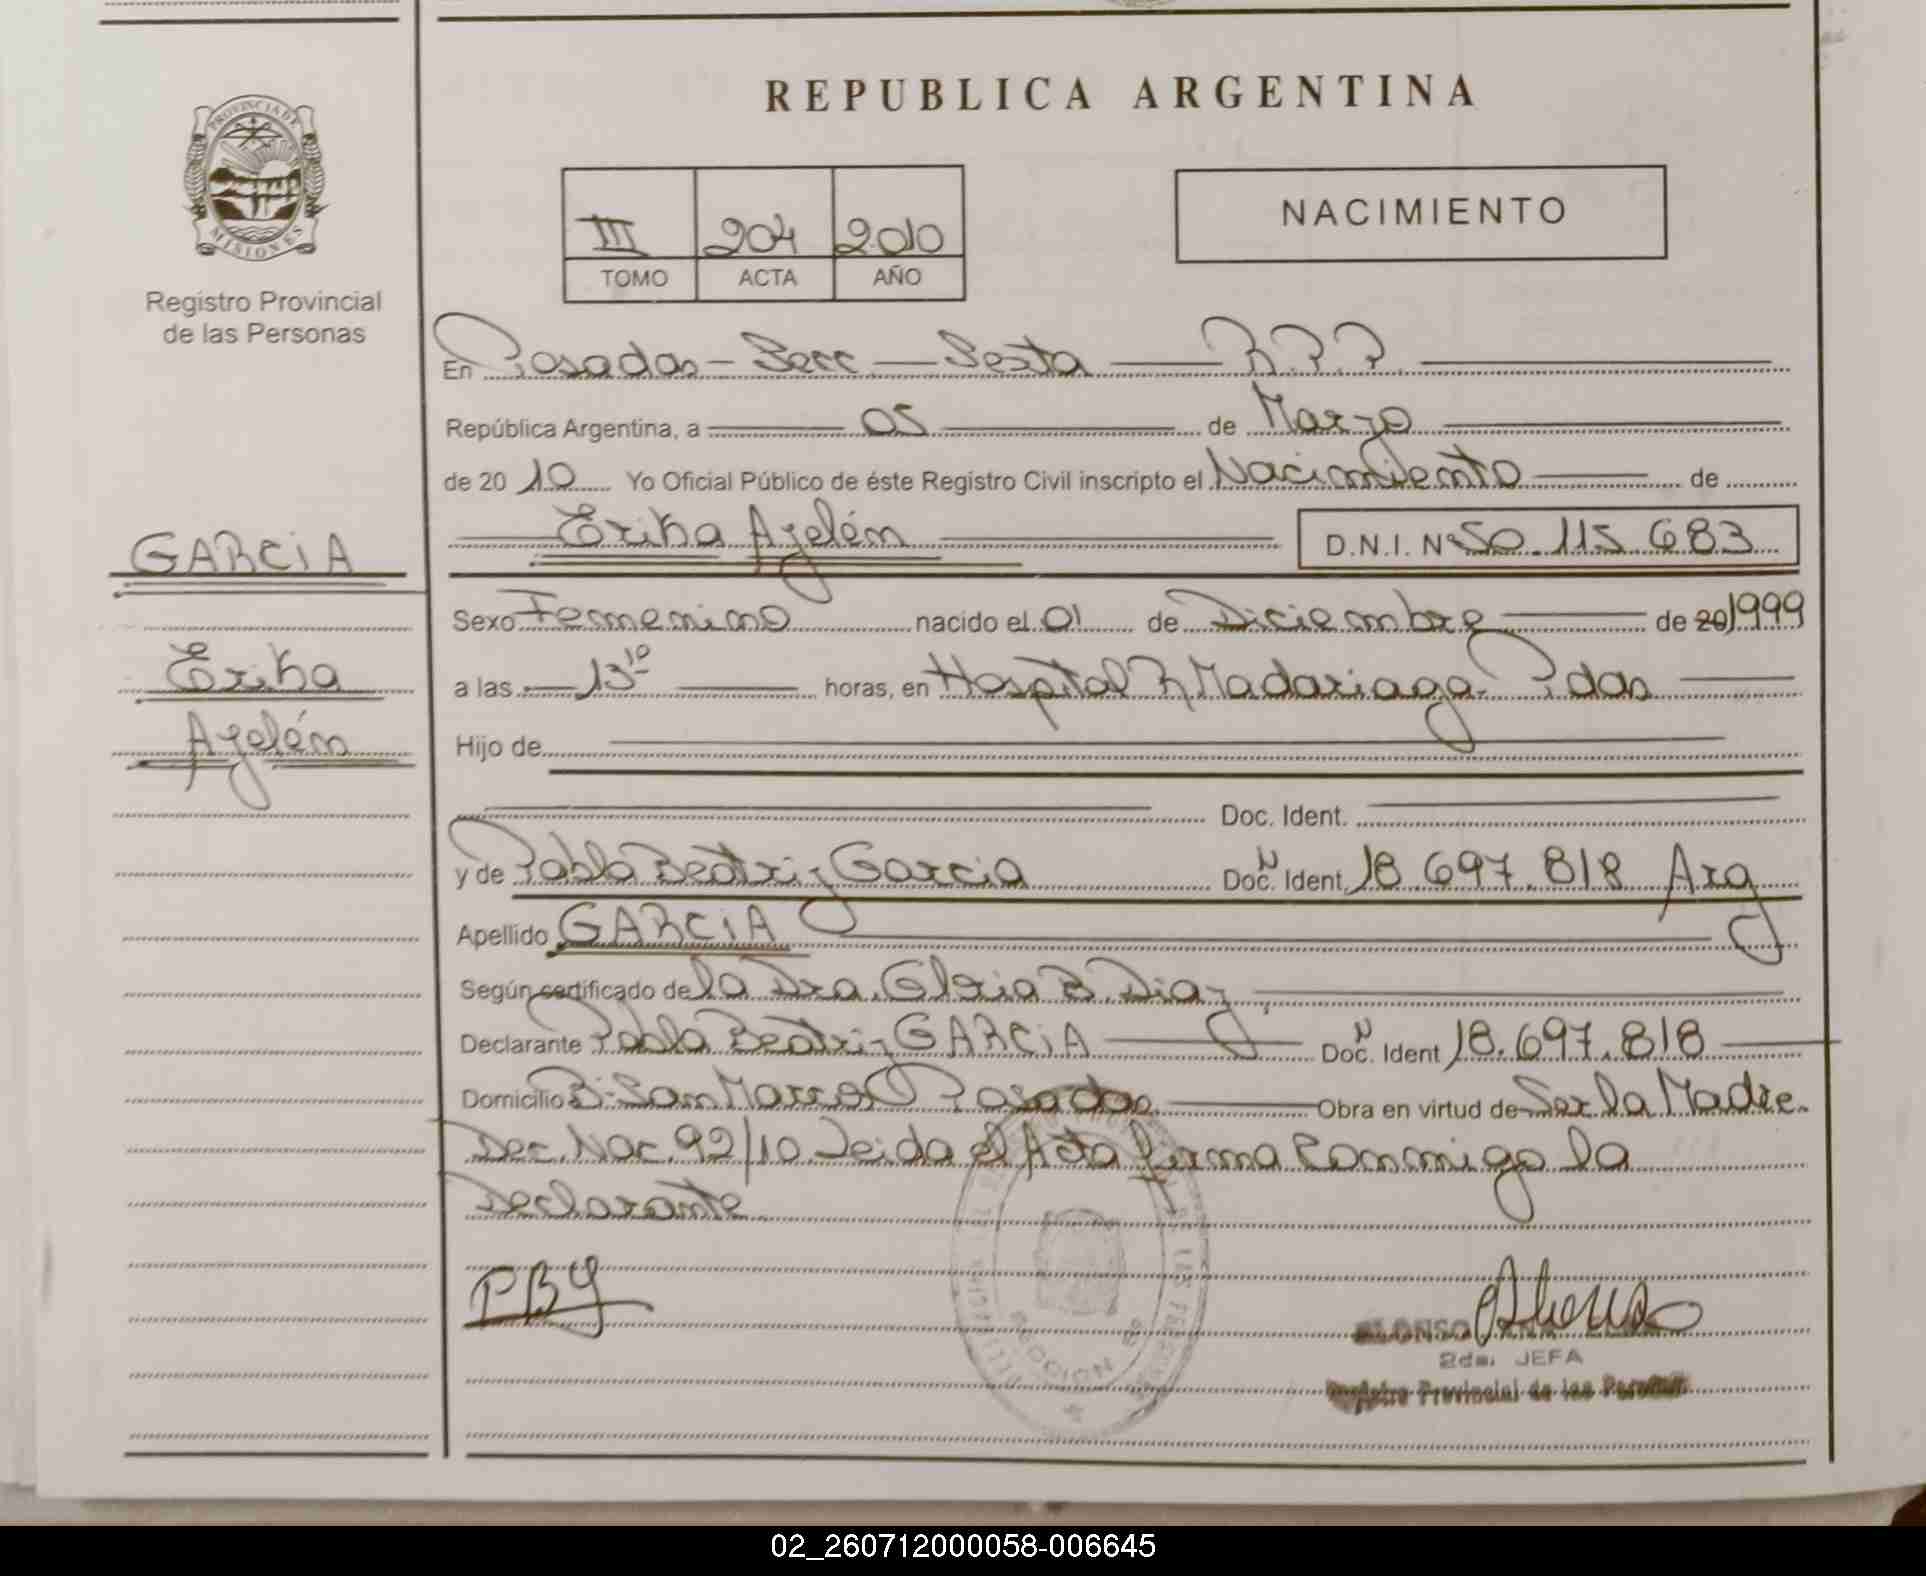 REPUBLICA ARGENTINA
PROVINCIA DE MISIONES
Registro Provincial
de las Personas
III 204 2010
TOMO ACTA AÑO
NACIMIENTO
En Posadas - Secc - Sexta R.P.P.
República Argentina, a 05 de Marzo
de 2010 Yo Oficial Público de éste Registro Civil inscripto el Nacimiento de
GARCIA
Erika Ayelén D.N.I. Nº 50.115.683
Sexo Femenino nacido el 01 de Diciembre de 20 1999
Erika
a las 13 10 horas, en Hospital R Madariaga Pdas
Ayelén
Hijo de
Doc. Ident.
y de Pabla Beatriz Garcia Doc. Ident. 18.697.818 Arg
Apellido GARCIA
Según certificado de la Dra. Gloria B. Diaz
Declarante Pabla Beatriz GARCIA Doc. Ident 18.697.818
Domicilio Bº San Marcos Posadas Obra en virtud de Ser la Madre.
Dec. Nac. 92/10 Leida el Acta firma Conmigo la
Declarante
PBG
ALONSO ANA
2da. JEFA
Registro Provincial de las Personas
SECCION
02_260712000058-006645